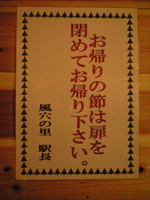 お帰りの節は扉を
閉めてお帰り下さい。
風穴の里 駅長